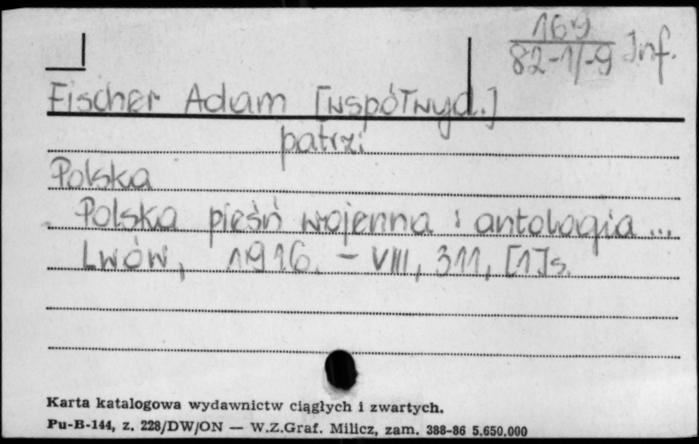 169
82-1/-9 Inf.
Fischer Adam [współwyd.]
patrzi
Polska
Polska pieśń wojenna : antologia ...
Lwów, 1916. – VIII, 311, [1]s.
Karta katalogowa wydawnictw ciągłych i zwartych.
Pu-B-144, z. 228/DW/ON — W.Z.Graf. Milicz, zam. 388-86 5.650.000